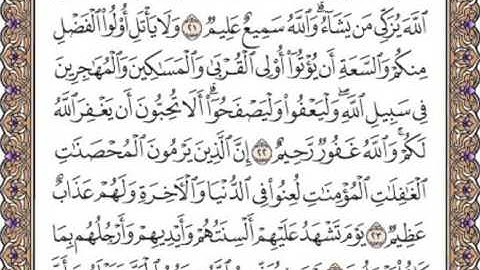 اللَّهَ يُزَكِّي مَن يَشَاءُ ۗ وَاللَّهُ سَمِيعٌ عَلِيمٌ ﴿٢١﴾ وَلَا يَأْتَلِ أُولُوا الْفَضْلِ
مِنكُمْ وَالسَّعَةِ أَن يُؤْتُوا أُولِي الْقُرْبَىٰ وَالْمَسَاكِينَ وَالْمُهَاجِرِينَ
فِي سَبِيلِ اللَّهِ ۖ وَلْيَعْفُوا وَلْيَصْفَحُوا ۗ أَلَا تُحِبُّونَ أَن يَغْفِرَ اللَّهُ
لَكُمْ ۗ وَاللَّهُ غَفُورٌ رَّحِيمٌ ﴿٢٢﴾ إِنَّ الَّذِينَ يَرْمُونَ الْمُحْصَنَاتِ
الْغَافِلَاتِ الْمُؤْمِنَاتِ لُعِنُوا فِي الدُّنْيَا وَالْآخِرَةِ وَلَهُمْ عَذَابٌ
عَظِيمٌ ﴿٢٣﴾ يَوْمَ تَشْهَدُ عَلَيْهِمْ أَلْسِنَتُهُمْ وَأَيْدِيهِمْ وَأَرْجُلُهُم بِمَا